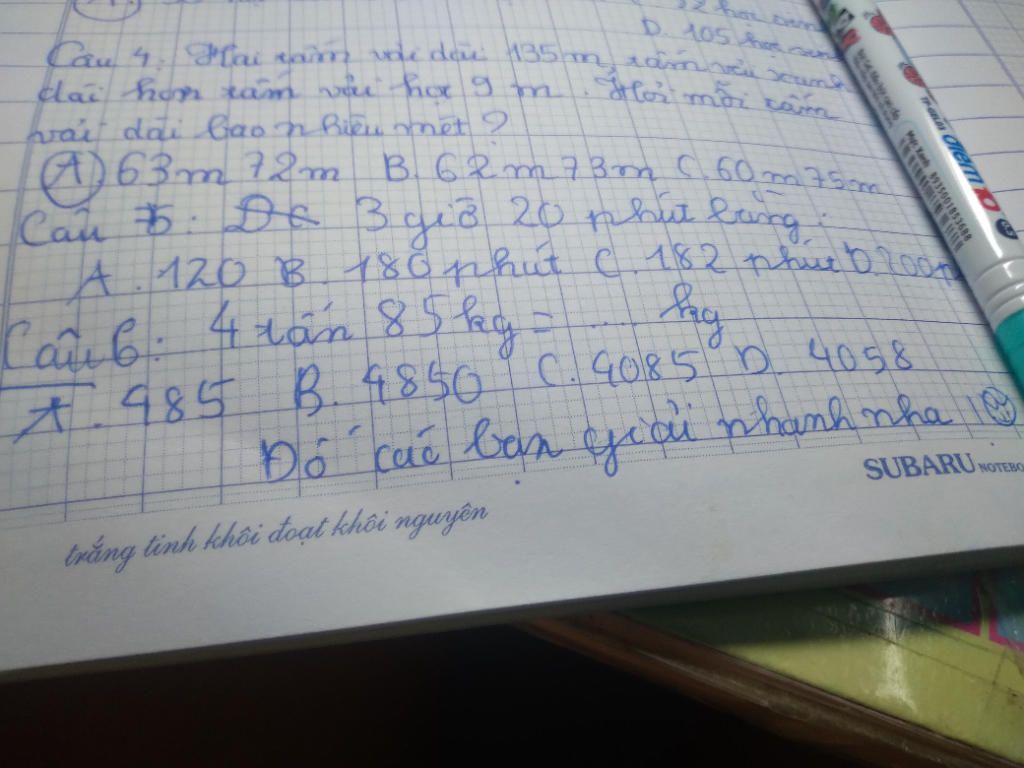 D. 105
Câu 4. Hai tấm vải dài 135m, tấm vải xanh
dài hơn tấm vải 9 m. Hỏi mỗi tấm
vải dài bao nhiêu mét?
A 63m 72m B. 62 m 73m C. 60m 75m
Câu 5: 3 giờ 20 phút bằng:
A. 120 B. 180 phút C. 182 phút D. 200p
Câu 6: 4 tấn 85 kg = .... kg
A. 485 B. 4850 C. 4085 D. 4058
Đố các bạn giải nhanh nha!
SUBARU NOTEBO
trắng tinh khôi đoạt khôi nguyên
điểm 10
Mực Xanh
8935001853688